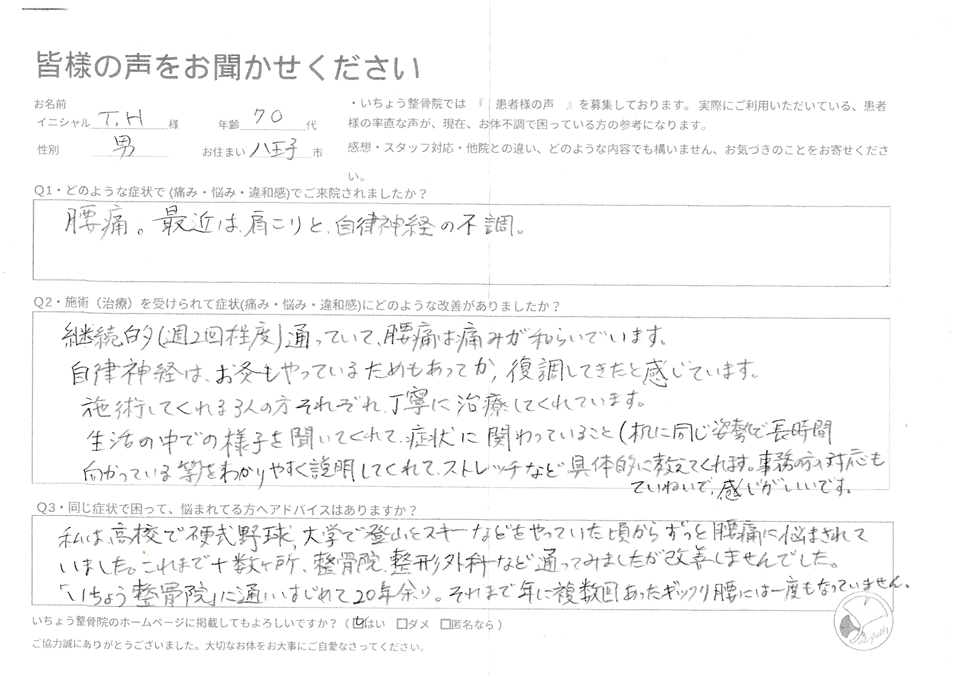 皆様の声をお聞かせください
お名前
イニシャル T.H 様 年齢 70 代
性別 男 お住まい 八王子 市
・いちょう整骨院では 『 患者様の声 』を募集しております。 実際にご利用いただいている、患者
様の率直な声が、現在、お体不調で困っている方の参考になります。
感想・スタッフ対応・他院との違い、どのような内容でも構いません、お気づきのことをお寄せくださ
い。
Q1・どのような症状で (痛み・悩み・違和感)でご来院されましたか？
腰痛。最近は、肩こりと、自律神経の不調。
Q2・施術（治療）を受けられて症状(痛み・悩み・違和感)にどのような改善がありましたか？
継続的(週2回程度)通っていて、腰痛は痛みが和らいでいます。
自律神経は、お灸もやっているためもあってか、復調してきたと感じています。
施術してくれる3人の方それぞれ、丁寧に治療してくれています。
生活の中での様子を聞いてくれて、症状に関わっていること(机に同じ姿勢で長時間
向かっている等)をわかりやすく説明してくれて、ストレッチなど具体的に教えてくれます。事務の方の対応も
ていねいで、感じがいいです。
Q3・同じ症状で困って、悩まれてる方へアドバイスはありますか？
私は、高校で硬式野球、大学で登山とスキーなどをやっていた頃からずっと腰痛に悩まされて
いました。これまで十数ヶ所、整骨院、整形外科など通ってみましたが改善しませんでした。
「いちょう整骨院」に通いはじめて20年余り。それまで年に複数回あったギックリ腰には一度もなっていません。
いちょう整骨院のホームページに掲載してもよろしいですか？（ ☑はい □ダメ □匿名なら ）
ご協力誠にありがとうございました。大切なお体をお大事にご自愛なさってください。